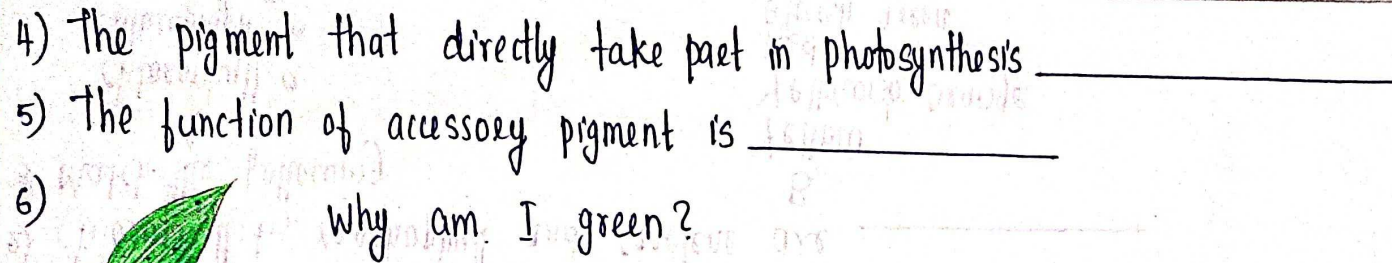 4) The pigment that directly take paet in photosynthesis ______
5) The function of accessory pigment is ______
6) Why am I green?